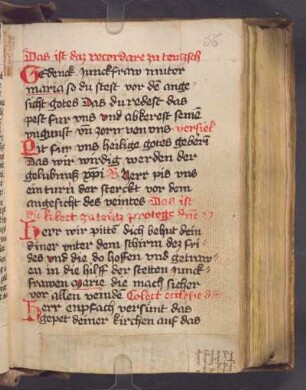 56
Das ist daz recordare zu teutzsch
Gedenck junckfraw muter
maria so du stest vor dē ange
sicht gotes Das du redest das
pest fur vns vnd abkerest seinē
vngunst vn̄ zorn von vns versikel
Pit fur vns heilige gotes geberī
Das wir wirdig werden der
gelubnuß xp̄i R Herr pis vns
ein turn der sterckt vor dem
angesicht des veintes Das ist
die kolect zu teutz protege dn̄e
Herr wir pitten dich behut dein
diner vnter dem schirm dez fri
des vnd die do hoffen vnd getraw
en in die hilff der stetten junck
frawen marie die mach sicher
vor allen veinde Colect ecclesie
Herr enpfach versunt das
gepet deiner kirchen auf das